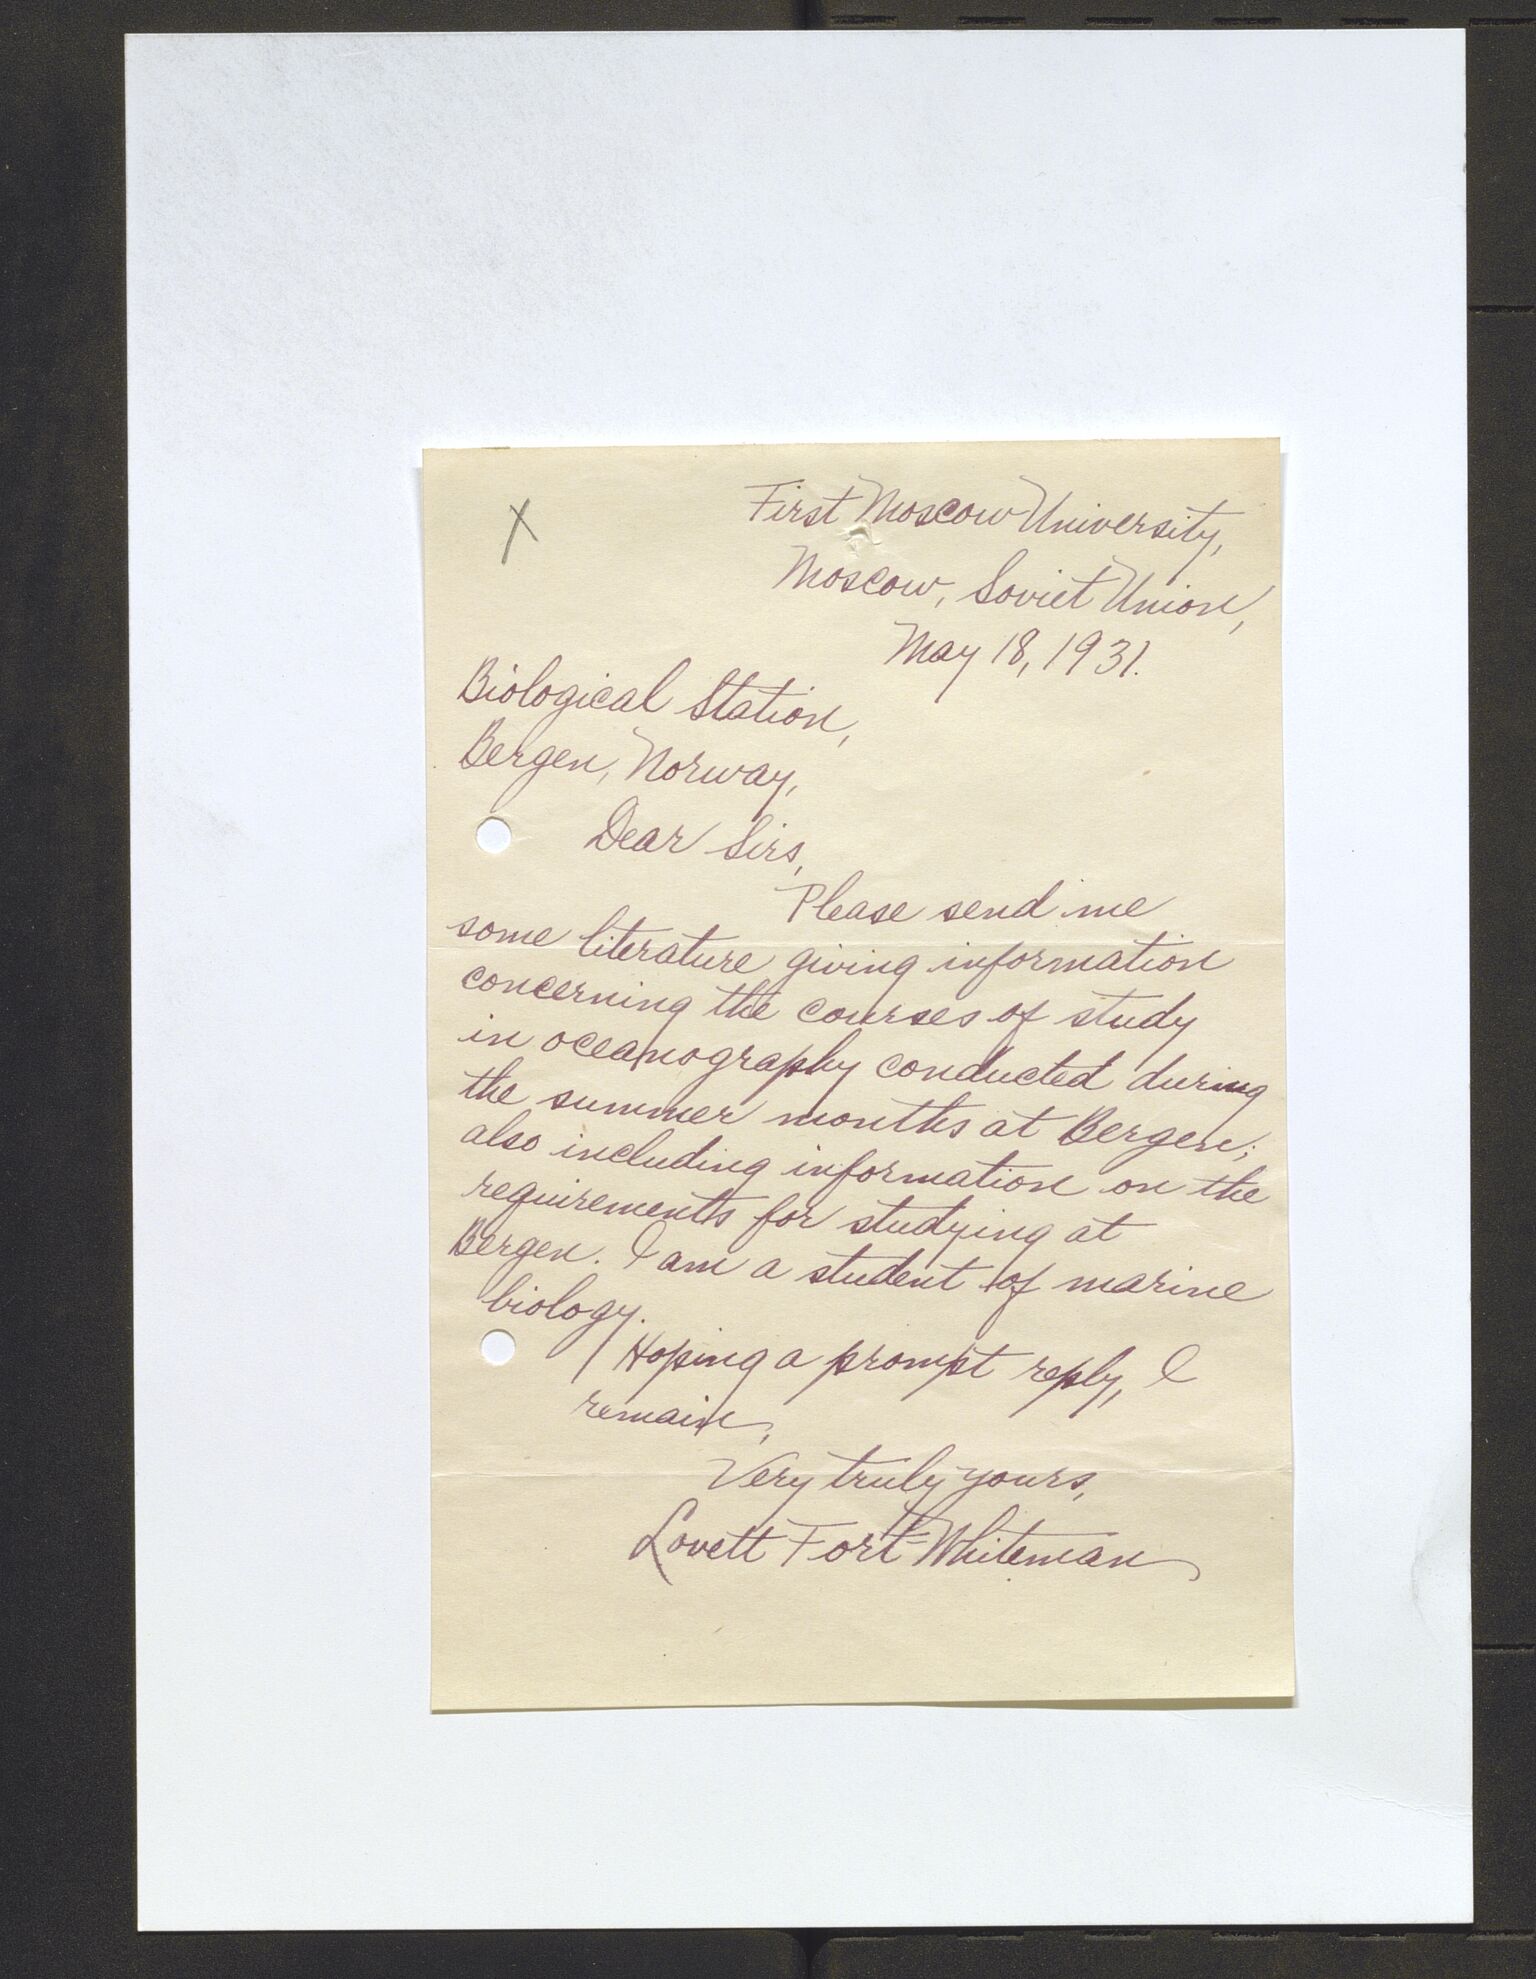 X
First Moscow University,
Moscow, Soviet Union,
May 18, 1931.
Biological Station,
Bergen, Norway,
Dear Sirs,
Please send me
some literature giving information
concerning the courses of study
in oceanography conducted during
the summer months at Bergen;
also including information on the
requirements for studying at
Bergen. I am a student of marine
biology.
Hoping a prompt reply, I
remain,
Very truly yours,
Lovett Fort-Whiteman